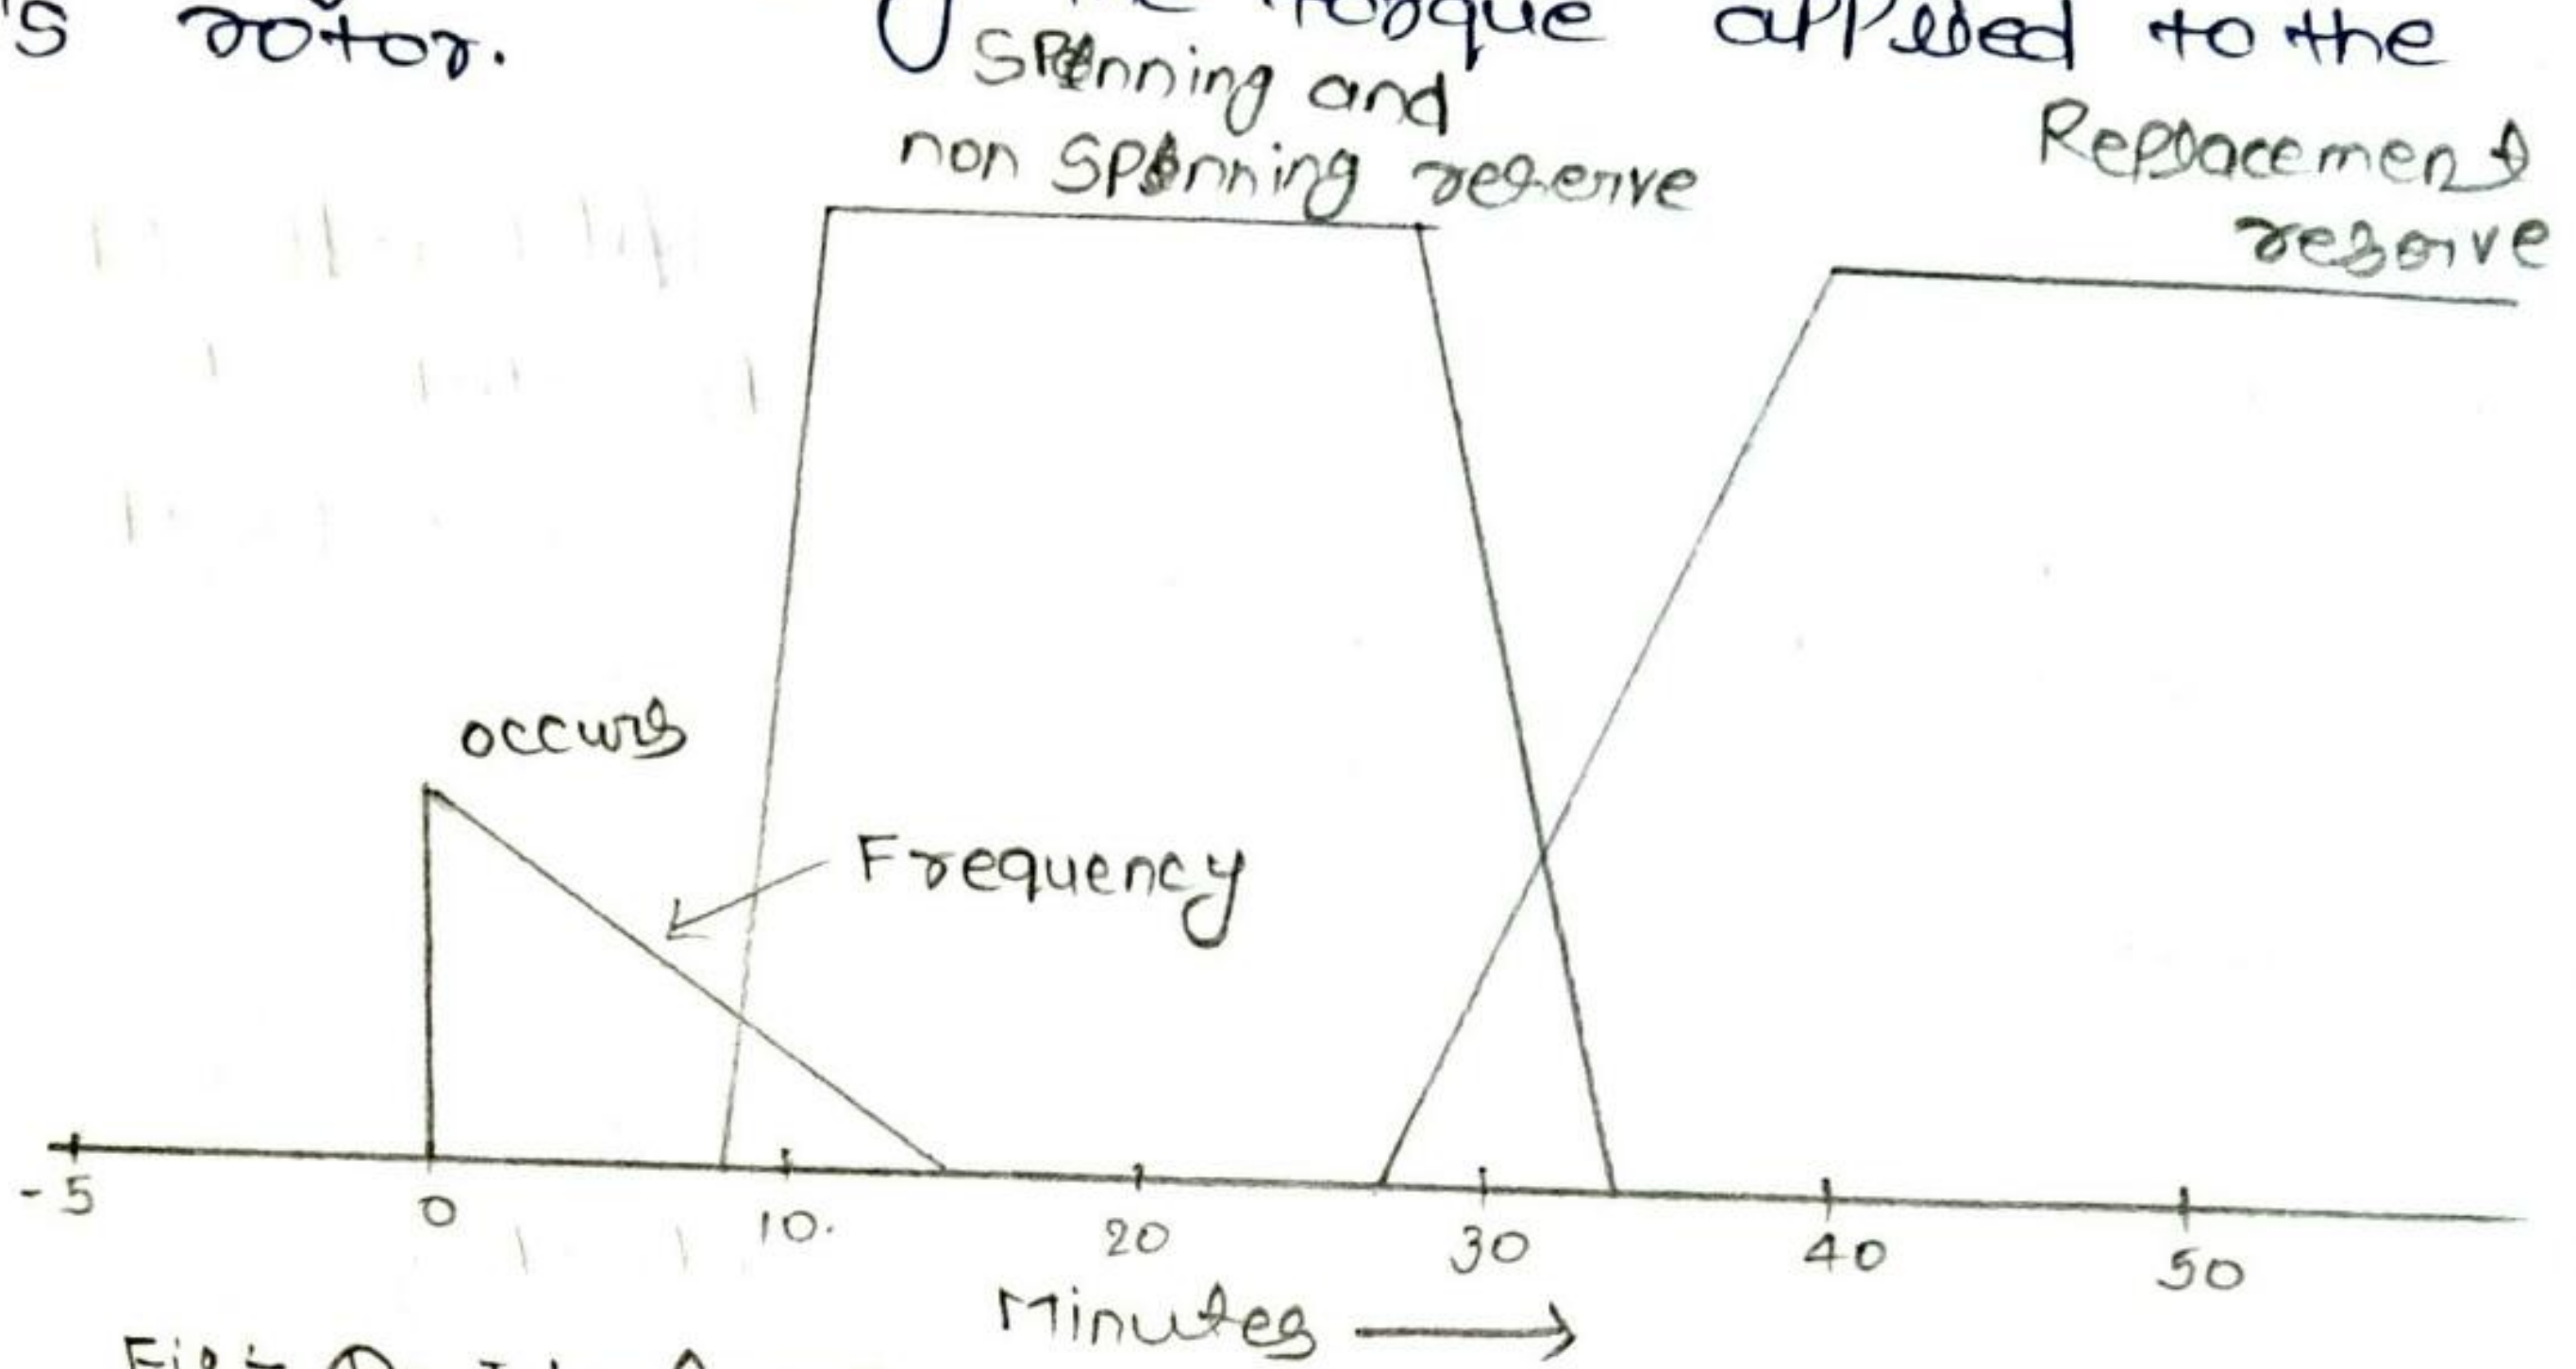 's rotor.
torque applied to the
Spinning and
non Spinning reserve
Replacement
reserve
occurs
Frequency
-5 0 10. 20 30 40 50
Minutes